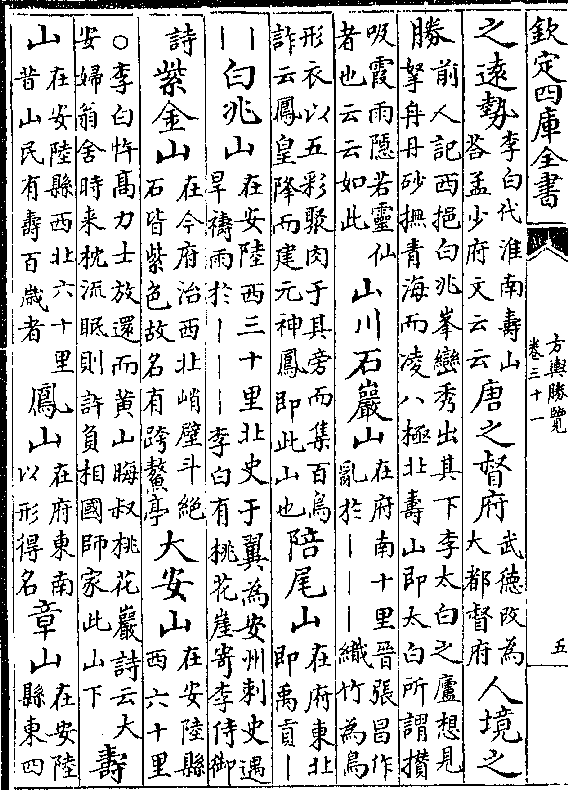 欽定四庫全書
方輿勝覽
卷三十一
五
之遠勢李白代淮南壽山荅孟少府文云云唐之督府武徳改為大都督府人境之
勝前人記西挹白兆峯巒秀出其下李太白之廬想見拏舟丹砂撫青海而凌八極北壽山即太白所謂攅
吸霞雨隱若靈仙者也云云如此山川石巖山在府南十里晉張昌作亂於｜｜｜織竹為鳥
形衣以五彩聚肉于其旁而集百鳥詐云鳳皇降而建元神鳳即此山也陪尾山在府東北即禹貢｜
｜白兆山在安陸西三十里北史于翼為安州刺史遇旱禱雨於｜｜｜李白有桃花崖寄李侍御
詩紫金山在今府治西北峭壁斗絶石皆紫色故名有跨鰲亭大安山在安陸縣西六十里
○李白忤髙力士放還而黄山晦叔桃花巖詩云大安婦翁舍時来枕流眠則許負相國師家此山下壽
山在安陸縣西北六十里昔山民有壽百歳者鳳山在府東南以形得名章山在安陸縣東四